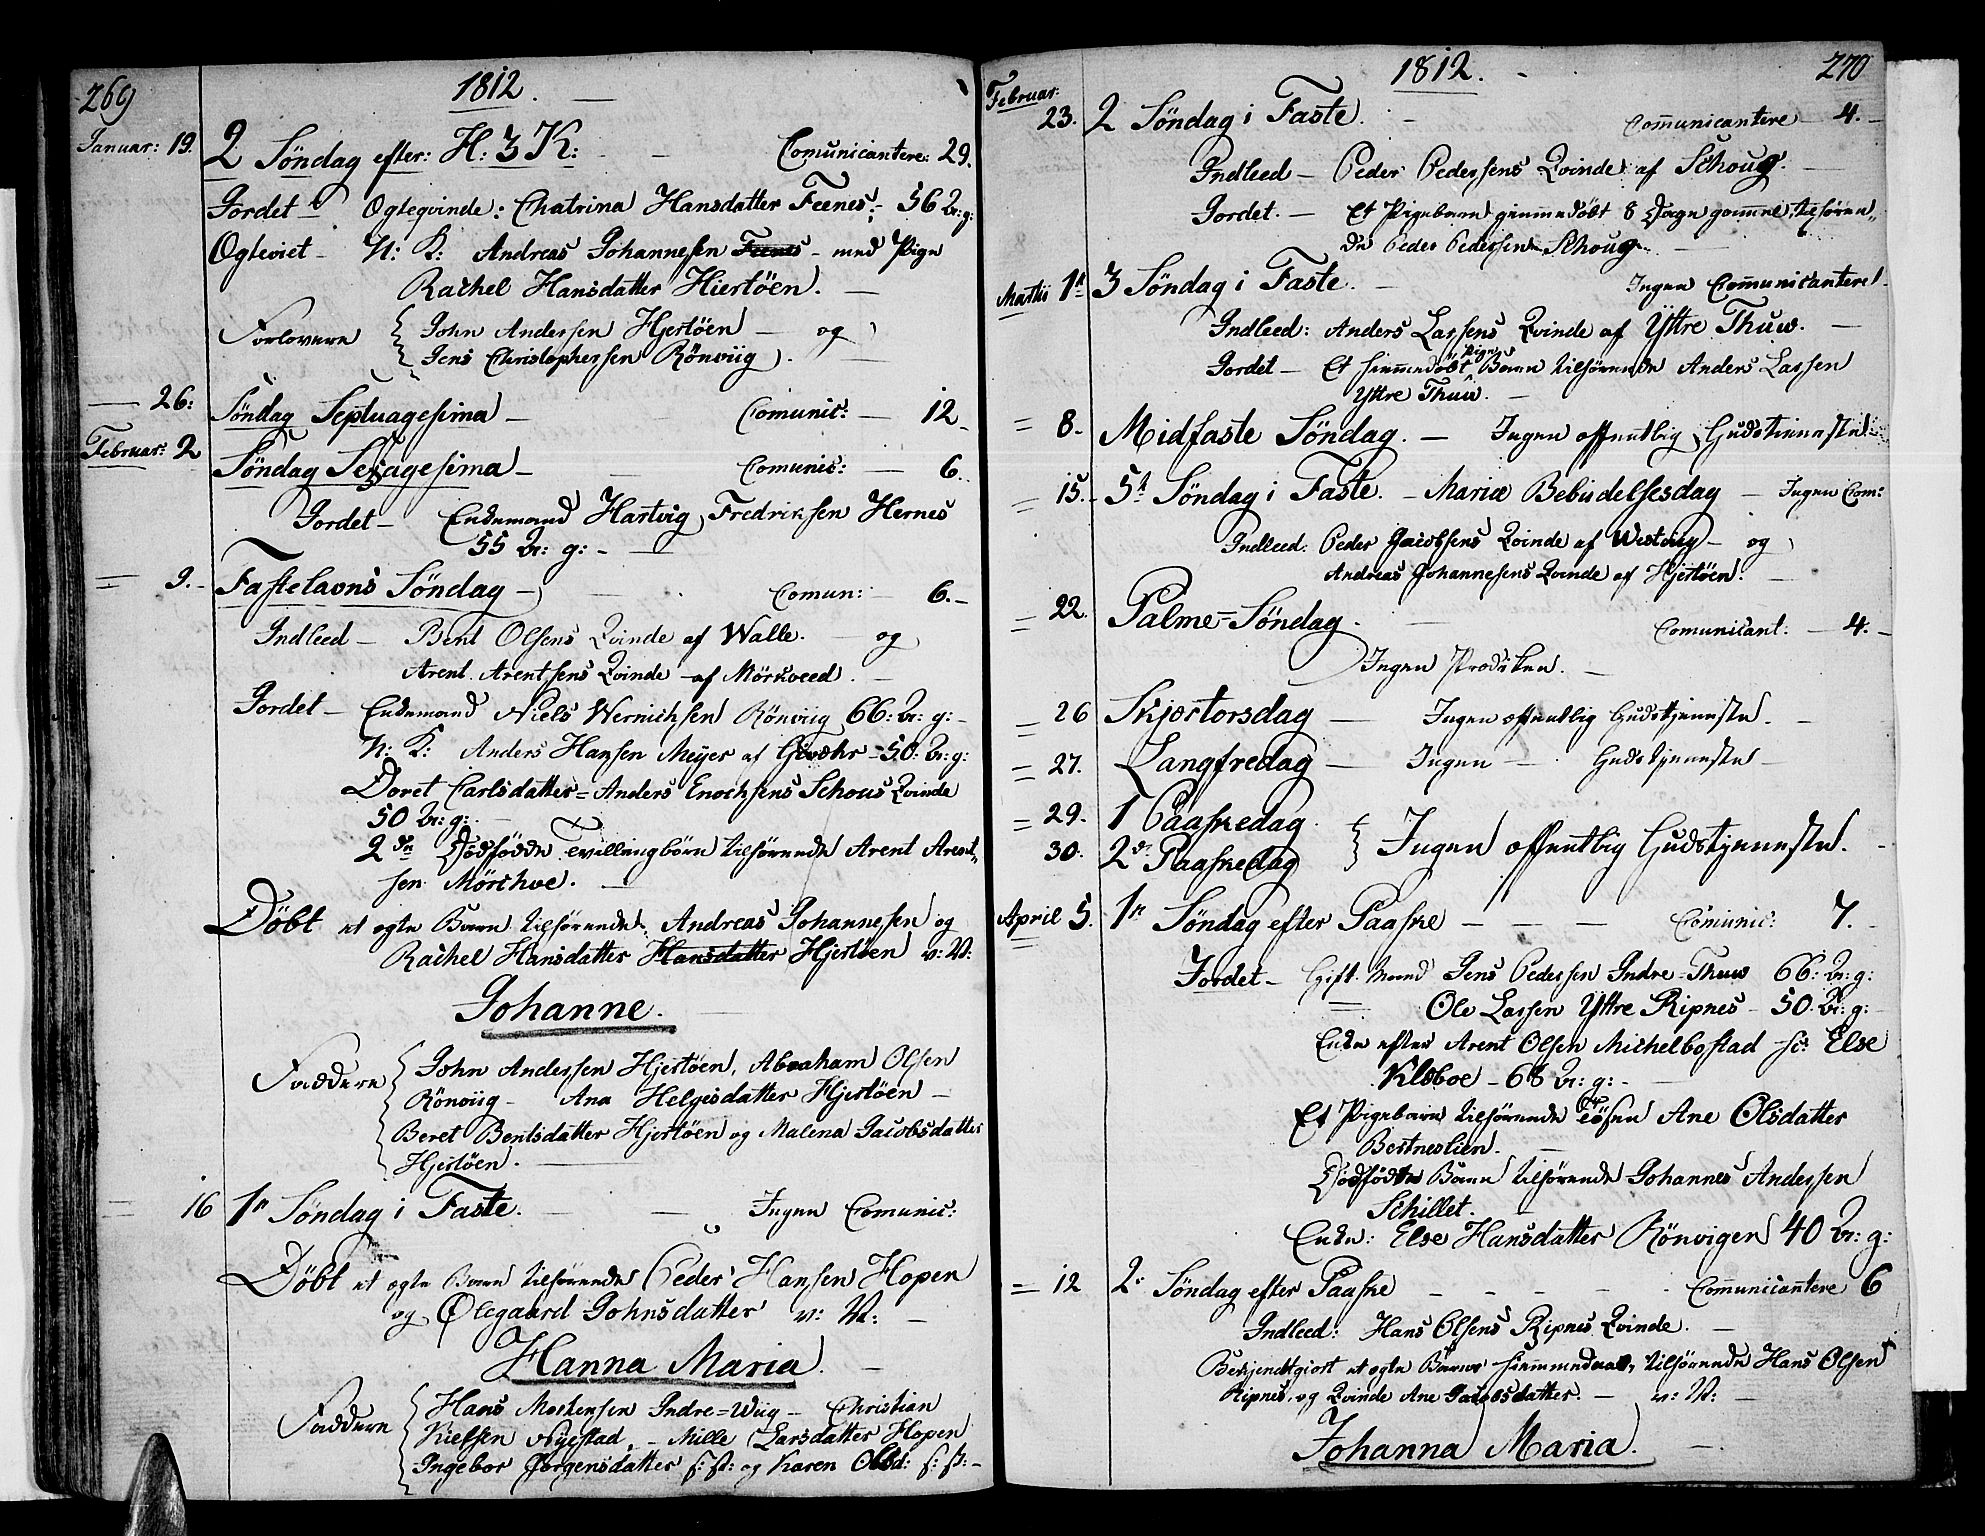 269
1812.
Januar: 19. 2 Søndag efter: H: 3 K: Comunicantere: 29.
Jordet Ogteqvinde: Chatrina Hansdatter Feenes; 56 Ar: g:
Ogteviet - N: K: Andreas Johannesen Feenes - med Pige
Rachel Hansdatter Hiertöen.
Forlovere { John Andersen Hjertöen - og
Jens Christophersen Rönviig.
26: Søndag Septuagesima - Comunic: - 12
Februar: 2 Søndag Sexagesima - Comunic: - 6.
Jordet - Enkemand Hartvig Fredriksen Hernes
55 Ar: g: -
9. - Fastelavns Søndag - Comun: - 6. -
Indleed - Bent Olsens Qvinde af Walle. og
Arent Arentsens Qvinde af Mörkveed.
Jordet - Enkemand Niels Wernichsen Rönviig 66: Ar: g: -
N: K: Anders Hansen Meyer af Givœhr - 50: Ar: g:
Doret Carlsdatter = Anders Enochsens Schous Qvinde
50 Ar: g: -
2de Dödfödde Tvillingbörn tilhörende Arent Arent„
sen Mörchve.
Døbt et ægte Barn tilhörende Andreas Johannesen og
Rachel Hansdatter Hansdatter Hjertöen v: N:
Johanne.
Faddere { John Andersen Hjertöen, Abraham Olsen
Rönviig - Ana Helgesdatter Hjertöen -
Beret Bentsdatter Hjertöen og Malena Jacobsdatter
Hjertöen.
16 1te Søndag i Faste. - Ingen Comunic:
Döbt et ægte Barn tilhörende Peder Hansen Hopen
og Ølegaard Johnsdatter v: N: -
Hanna Maria.
Faddere { Hans Mortensen Indre=Wiig - Christian
Nielsen Nyestad, - Mille Larsdatter Hopen
Ingebor Jörgensdatter s: st: og Karen Olsd: s: st: -
1812.
270
Februar:
23. 2 Søndag i Faste. - Comunicantere - 4. -
Indleed - Peder Pedersens Qvinde af Schoug.
Jordet. - Et Pigebarn hiemmedöbt 8 Dage gamme, tilhören„
de Peder Pedersen Schoug.
Martii 1te 3 Søndag i Faste. - Ingen Comunicantere.
Indleed: Anders Lassens Qvinde af Yttre Thuw.
Jordet - Et hiemmedöbt Pige Barn tilhörende Anders Lassen
Yttre Thuw.
= 8. Midfaste Søndag. - Ingen offentlig Gudstienneste
= 15. - 5te Søndag i Faste. - Mariæ Bebudelsesdag - Ingen Com:
Indleed: Peder Jacobsens Qvinde af Westviig - og
Andreas Johannesens Qvinde af Hjertöen.
= 22. Palme=Søndag. Comunicant: - 4. -
Ingen Prædiken. -
= 26 Skjertorsdag - Ingen offentlig Gudstjenneste. -
= 27. Langfredag - Ingen - Gudstjenneste -
= 29. 1 Paaskedag.
30. 2de Paaskedag } Ingen offentlig Gudstjenneste.
April 5. 1te Søndag efter Paaske - - - Comunic: 7.
Jordet - Gift Mand Jens Pedersen Indre=Thuw 66: Ar: g:
= Ole Lassen Yttre Ripnes - 50. Ar: g:
Enke efter Arent Olsen Michelbostad - sc: Else
Klæboe - 68 Ar: g: -
Et Pigebarn tilhörende Tösen Ane Olsdatter
Bestneslien.
Dödfödte Barn tilhörende Johannes Andersen
Schillet.
Enke: Else Hansdatter Rönvigen 40 Ar: g:
= 12 2. Søndag efter Paaske - - - Comunicantere 6
Indleed: Hans Olsens Ripnes Qvinde.
Bekjendtgiort et ægte Barns hiemmedaab, tilhörende Hans Olsen
Ripnes, og Qvinde Ane Jacobsdatter. - v: N: -
Johanna Maria. -